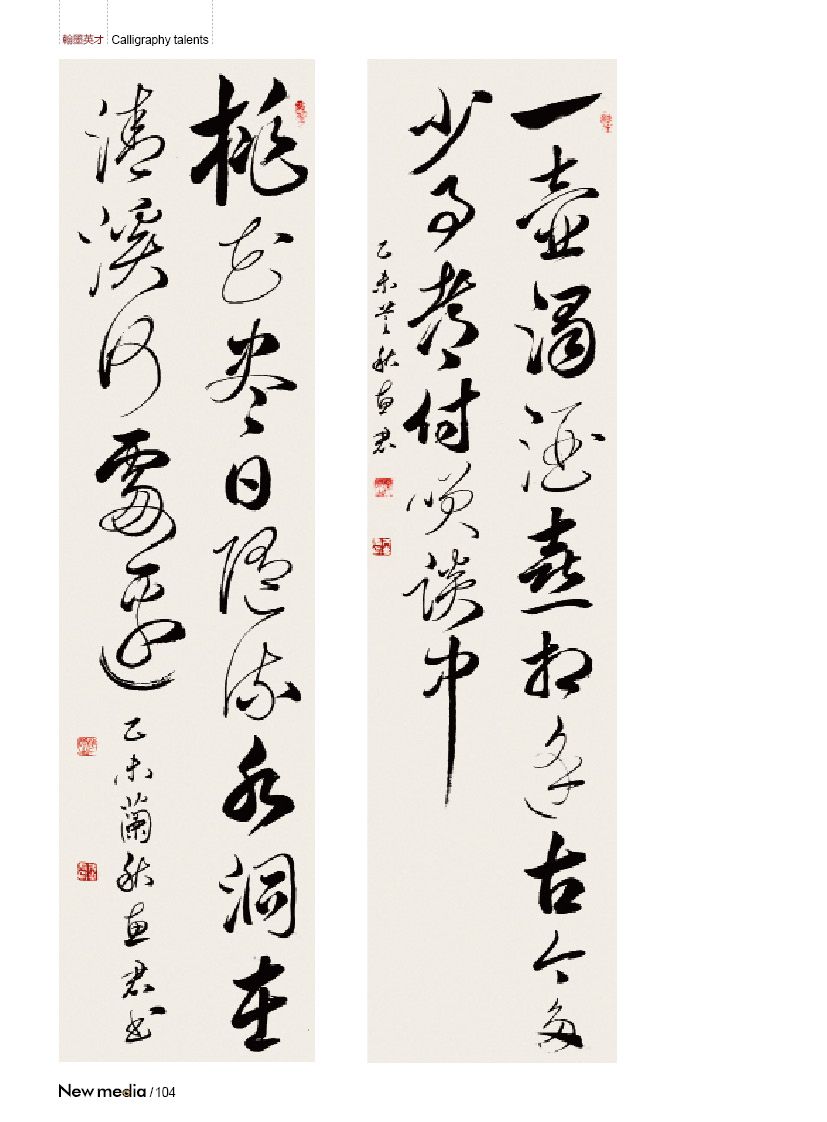 翰墨英才 Calligraphy talents
一壺濁酒喜相逢古今多
少事都付笑談中
乙未蘭秋惠君
桃花盡日隨流水洞在
清溪何處邊
乙未蘭秋惠君书
New media / 104